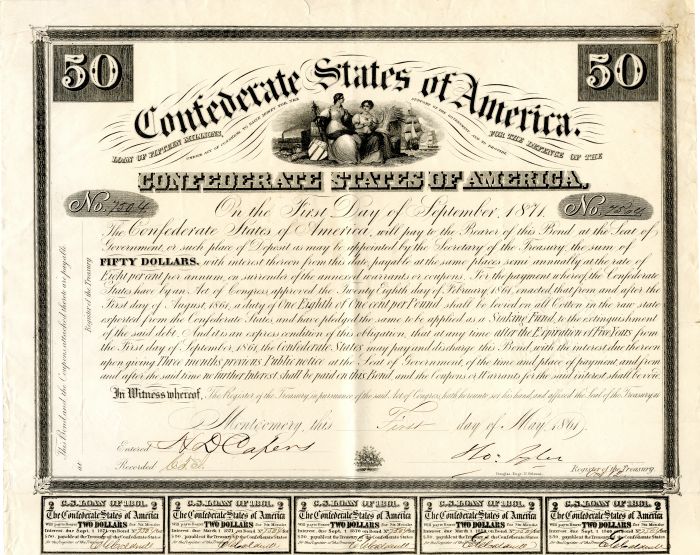 50
50
Confederate States of America.
LOAN OF FIFTEEN MILLIONS,
UNDER ACT OF CONGRESS TO RAISE MONEY FOR THE
SUPPORT OF THE GOVERNMENT AND TO PROVIDE
FOR THE DEFENSE OF THE
CONFEDERATE STATES OF AMERICA,
No. 7504
No. 7504
On the First Day of September, 1871,
The Confederate States of America, will pay to the Bearer of this Bond at the Seat of
Government, or such place of Deposit as may be appointed by the Secretary of the Treasury, the sum of
FIFTY DOLLARS, with interest thereon from this date, payable at the same places semi annually at the rate of
Eight per cent per annum, on surrender of the annexed warrants or coupons. For the payment whereof the Confederate
States have by an Act of Congress, approved the Twenty Eighth day of February 1861, enacted that from and after the
First day of August, 1861, a duty of One Eighth of One cent per Pound shall be levied on all Cotton in the raw state
exported from the Confederate States, and have pledged the same to be applied as a Sinking Fund, to the extinguishment
of the said debt. And it is an express condition of this Obligation, that at any time after the Expiration of Five Years from
the First day of September, 1861, the Confederate States may pay and discharge this Bond, with the interest due thereon
upon giving Three months previous Public notice at the Seat of Government, of the time and place of payment, and from
and after the said time no further Interest shall be paid on this Bond and the Coupons or Warrants for the said interest shall be void.
In Witness whereof, The Register of the Treasury, in pursuance of the said Act of Congress, hath hereunto set his hand, and affixed the Seal of the Treasury at
Montgomery, this First day of May 1861
Entered H D Capers
Recorded
Register of the Treasury
Douglas, Engr. N. Orleans.
This Bond and the Coupons attached thereto are payable
at
Register of the Treasury
2 C.S. LOAN OF 1861. 2
The Confederate States of America
Will pay to Bearer TWO DOLLARS for Six Months
Interest due Sept. 1 1871 on Bond
2 C.S. LOAN OF 1861. 2
The Confederate States of America
Will pay to Bearer TWO DOLLARS for Six Months
Interest due March 1 1871 on Bond
2 C.S. LOAN OF 1861. 2
The Confederate States of America
Will pay to Bearer TWO DOLLARS for Six Months
Interest due Sept. 1 1870 on Bond
2 C.S. LOAN OF 1861. 2
The Confederate States of America
Will pay to Bearer TWO DOLLARS for Six Months
2 C.S. LOAN OF 1861. 2
The Confederate States of America
Will pay to Bearer TWO DOLLARS for Six Months